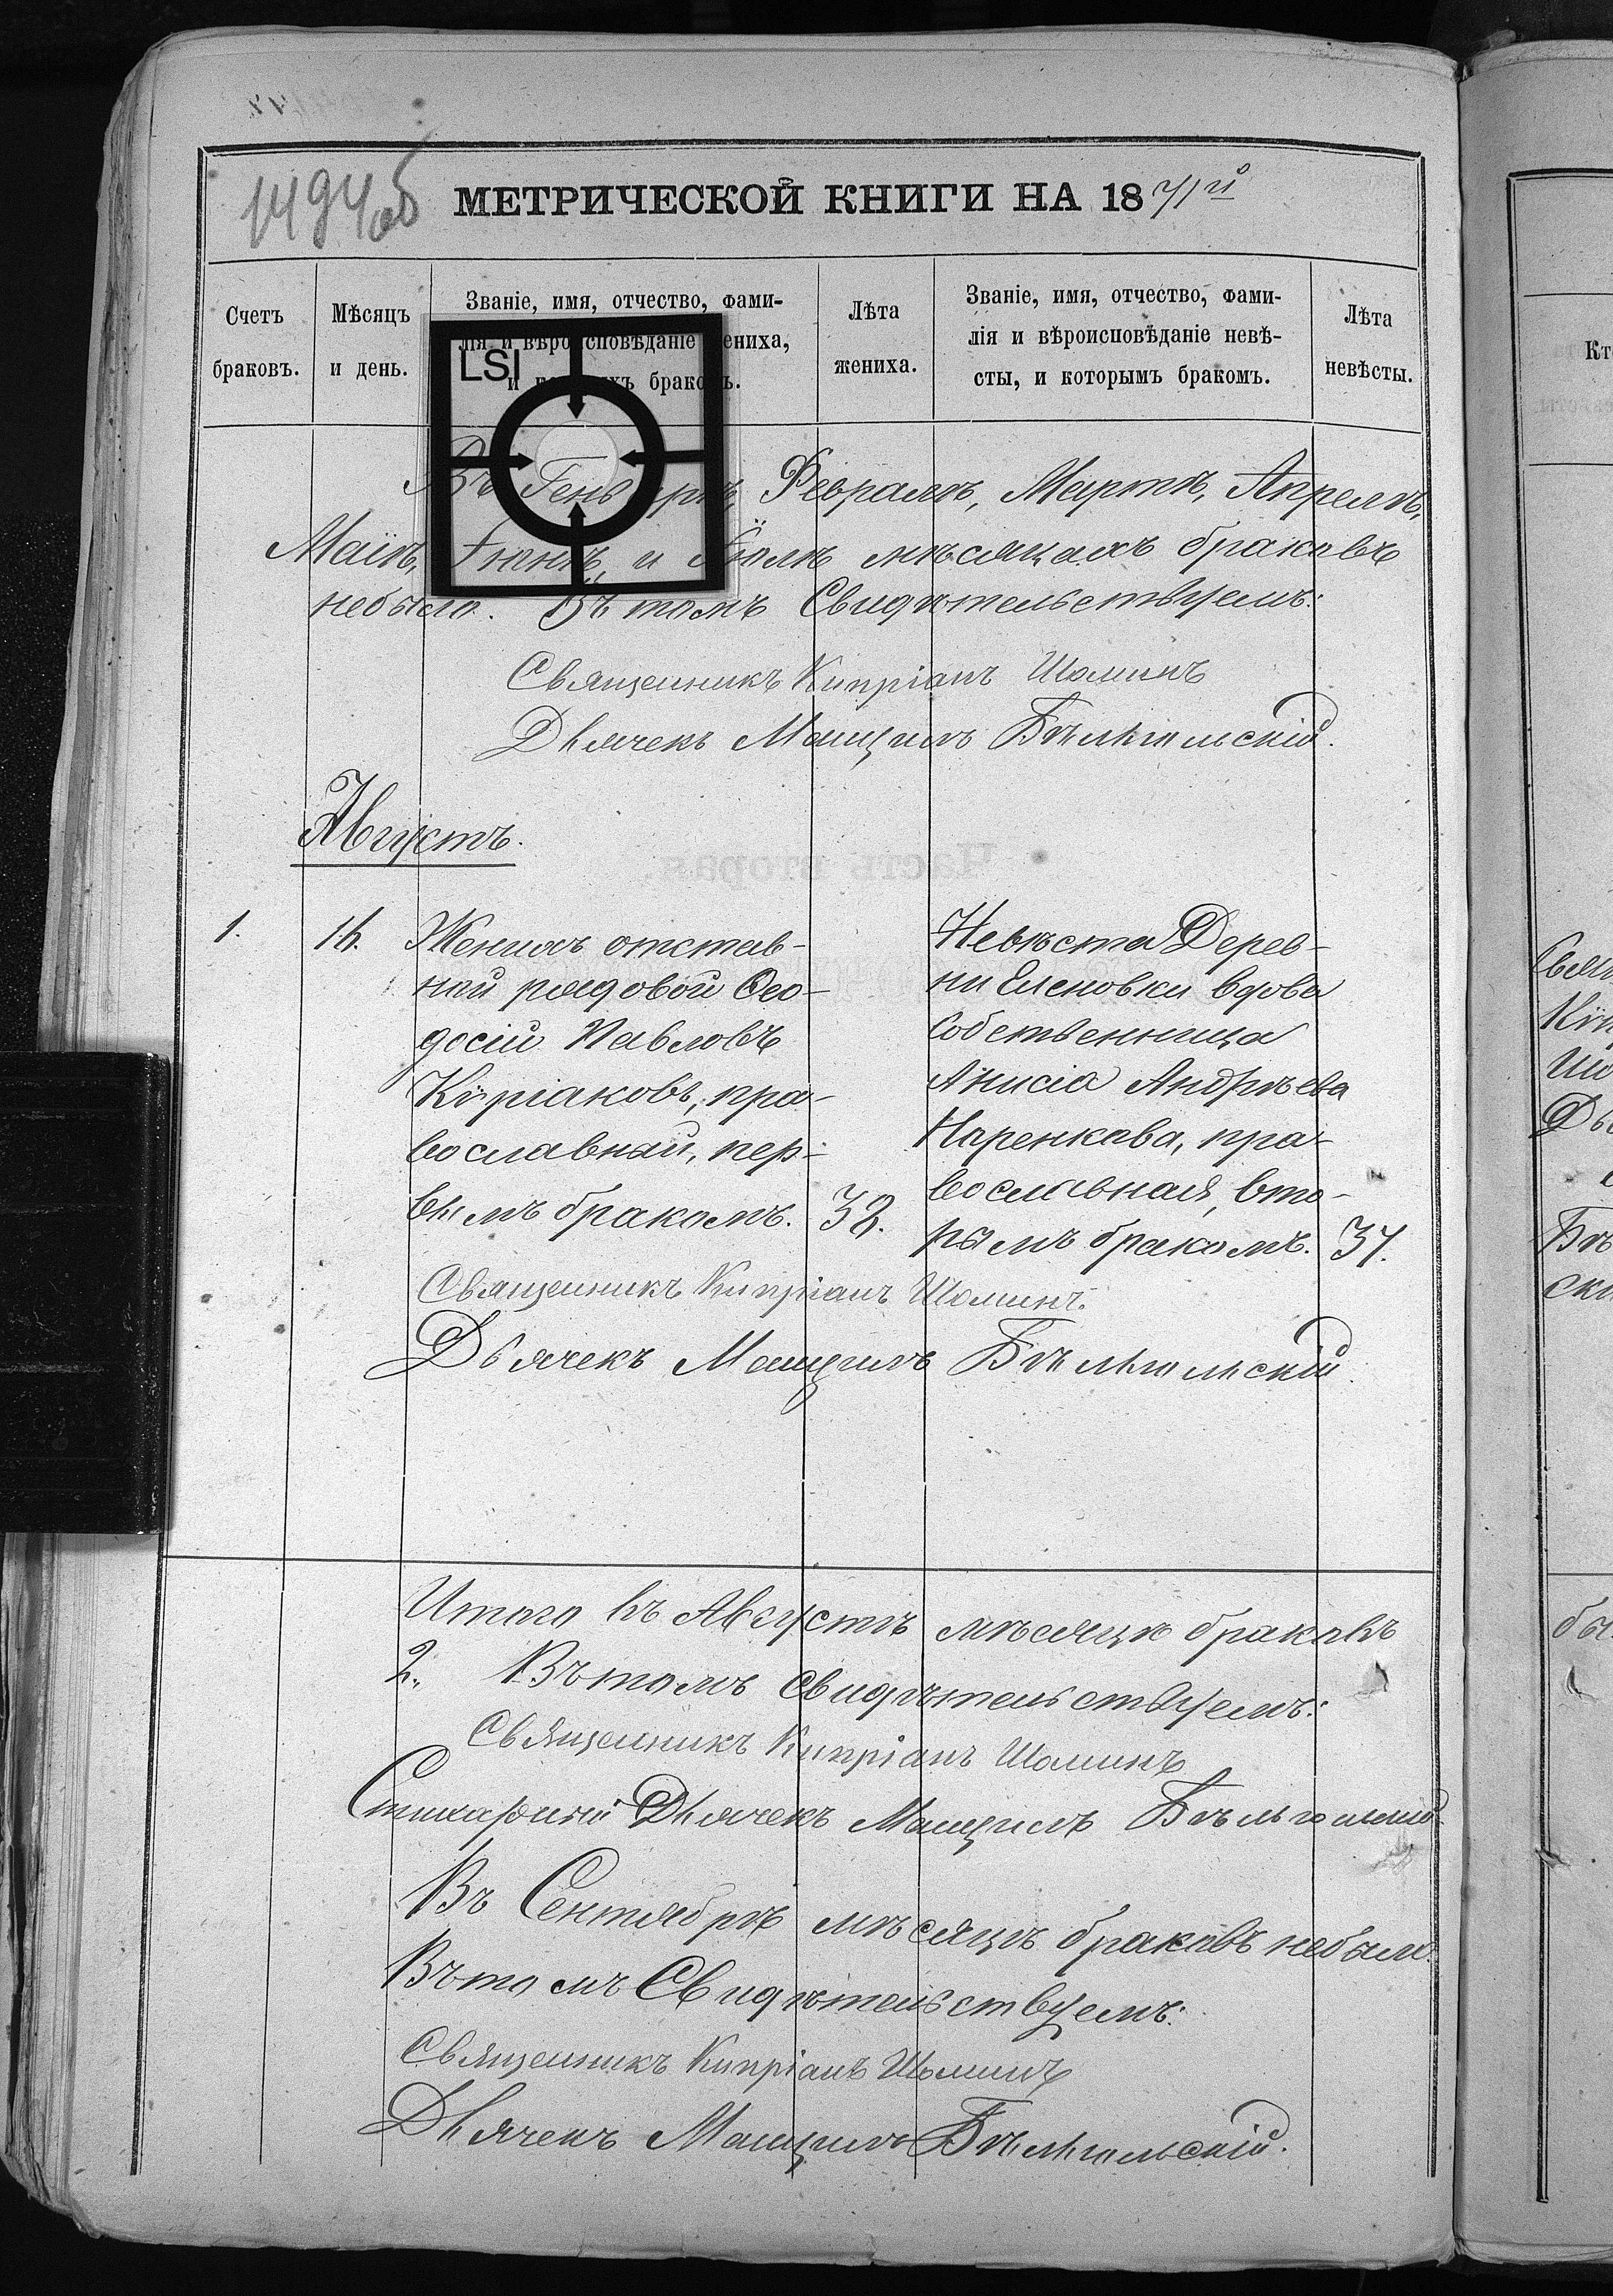 1494об
МЕТРИЧЕСКОЙ КНИГИ НА 1871й
Счетъ браковъ.
Мѣсяцъ и день.
Званіе, имя, отчество, фами-
лія и вѣроисповѣданіе жениха,
и бракомъ.
Лѣта жениха.
Званіе, имя, отчество, фами-
лія и вѣроисповѣданіе невѣ-
сты, и которымъ бракомъ.
Лѣта невѣсты.
LSI
Въ Генварѣ, Февралѣ, Мартѣ, Апрелѣ,
Маіѣ, Іюнѣ, и Іюлѣ мѣсяцахъ браковъ
небыло. Въ томъ Свидѣтельствуемъ:
Священникъ Кипріанъ Шоминъ
Дьячекъ Бѣльгольскій.
Августъ.
1.
16.
Женихъ отстав-
ной рядовой Ѳео-
досій Павловъ
Кѵріаковъ, пра-
вославный, пер-
вымъ бракомъ.
32.
Невѣста Дерев-
ни Еленовки вдова
Собственница
Анисіа Андрѣева
Наренкова, пра-
вославная, вто-
рымъ бракомъ.
37.
Священникъ Кипріанъ Шоминъ.
Дьячекъ Бѣльгольскій.
Итого въ Августѣ мѣсяцѣ браковъ
2. Въ томъ свидѣтельствуемъ:
Священникъ Кипріанъ Шоминъ
Стихарный Дьячекъ Бѣльгольскій
Въ Сентябрѣ мѣсяцѣ браковъ небыло.
Въ томъ Свидѣтельствуемъ:
Священникъ Кипріанъ Шоминъ
Дьячекъ Бѣльгольскій.